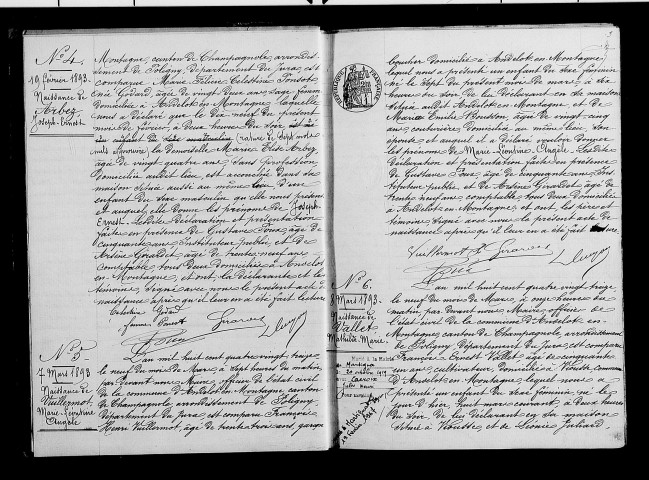 N° 4.
19 février 1893.
Naissance de
Arbez
Joseph-Ernest
Montagne, canton de Champagnole, arrondis-
sement de Poligny, département du Jura, est
comparue Marie Féline Célestine Ponsot
née Godard, âgée de vingt deux ans, sage femme
domiciliée à Andelot en Montagne laquelle
nous a déclaré que le dix neuf du présent
mois de février, à deux heures du soir
mots
la demoiselle Marie Elise Arbez
âgée de vingt quatre ans, sans profession
domiciliée audit lieu, est accouchée dans sa
maison située aussi au même lieu d'un
enfant du sexe masculin qu'elle nous présente
et auquel elle donne les prénoms de Joseph-
Ernest. Lesdite déclaration et présentation
faites en présence de Gustave Roux, âgé de
cinquante ans, Instituteur public, et de
Arsène Girardot, âgé de trente neuf ans
comptable tous deux domiciliés à Andelot
en Montagne, et ont la déclarante et les
témoins, signé avec nous le présent acte de
naissance après qu'il leur en a été fait lecture
Célestine Godard
femme Ponsot
N° 5
7 Mars 1893
Naissance de
Vuillermot
Marie-Léontine
Angèle
L'an mil huit cent quatre vingt treize
le neuf du mois de Mars à sept heures du matin
par devant nous Maire, officier de l'état civil
de la commune d'Andelot-en-Montagne canton
de Champagnole, arrondissement de Poligny
département du Jura, est comparu François
Henri Vuillermot, âgé de trente trois ans, garçon
domicilié à Andelot en Montagne
lequel nous a présenté un enfant du sexe féminin
né le sept du présent mois de mars à six
heures du soir, de lui déclarant en sa maison
située audit Andelot-en-Montagne, et de
Marie Emélie Bousson, âgée de vingt-cinq
ans, couturière domiciliée au même lieu, son
épouse et auquel il a déclaré vouloir donner
les prénoms de Marie-Léontine Angèle. Lesdite
déclaration et présentation faites en présence
de Gustave Roux, âgé de cinquante ans, Ins-
tituteur public, et de Arsène Girardot, âgé de
trente neuf ans, comptable, tous deux domiciliés
à Andelot en Montagne, et ont les père et
témoins signé avec nous le présent acte de
naissance après qu'il leur en a été fait lecture.
Vuillermot
N° 6.
8 Mars 1893.
Naissance de
Vallet
Mathilde-Marie.
Marié à la Mairie
20 octobre 1919
L'an mil huit cent quatre vingt treize
le neuf du mois de Mars, à onze heures du
matin par devant nous Maire, officier de
l'état civil de la commune d'Andelot en
Montagne canton de Champagnole, arrondissement
de Poligny, département du Jura, est comparu
François Ernest Vallet, âgé de cinquante
un ans, cultivateur domicilié à Vioutte commune
d'Andelot en Montagne lequel nous a
présenté un enfant du sexe féminin né le
jour d'hier huit mars courant à deux heures
du soir, de lui déclarant en sa maison
située à Vioutte, et de Léonie Juliard,